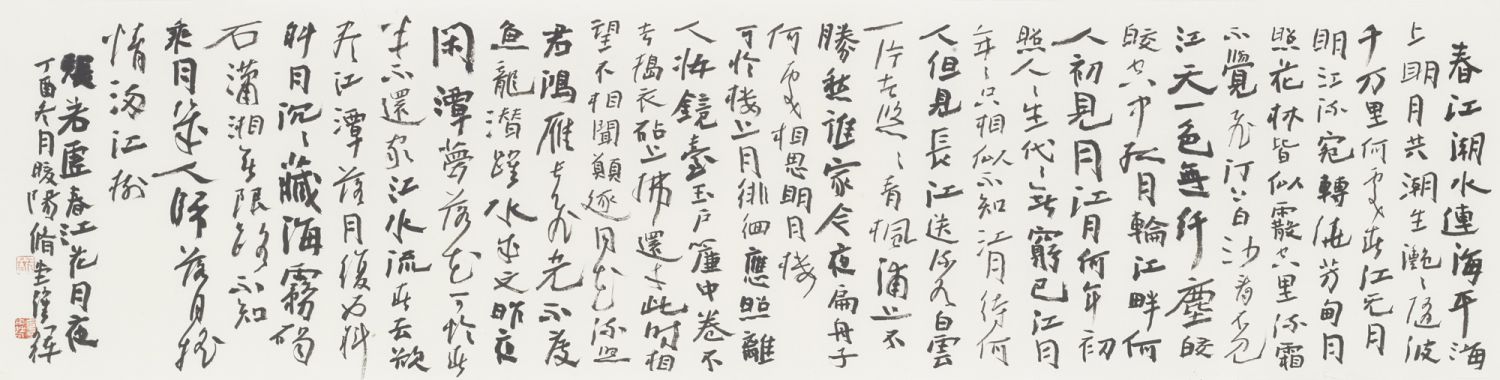 春江潮水連海平海
上明月共潮生灩〻隨波
千万里何處春江无月
明江流宛轉繞芳甸月
照花林皆似霰空里流霜
不覺飛汀上白沙看不見
江天一色無纤塵皎
皎空中孤月輪江畔何
人初見月江月何年初
照人〻生代〻無窮已江月
年〻只相似不知江月待何
人但見長江送流水白雲
一片去悠〻青楓浦上不
勝愁誰家今夜扁舟子
何處相思明月楼
可怜楼上月徘徊應照離
人妝鏡臺玉户簾中卷不
去搗衣砧上拂還來此時相
望不相聞願逐月華流照
君鴻雁長飛光不度
魚龍潛躍水成文昨夜
閑潭夢落花可怜春
半不還家江水流春去欲
尽江潭落月復西斜
斜月沉〻藏海霧碣
石瀟湘無限路不知
乘月幾人歸落月摇
情滿江樹
張若虚春江花月夜
丁酉冬月暖陽脩堂